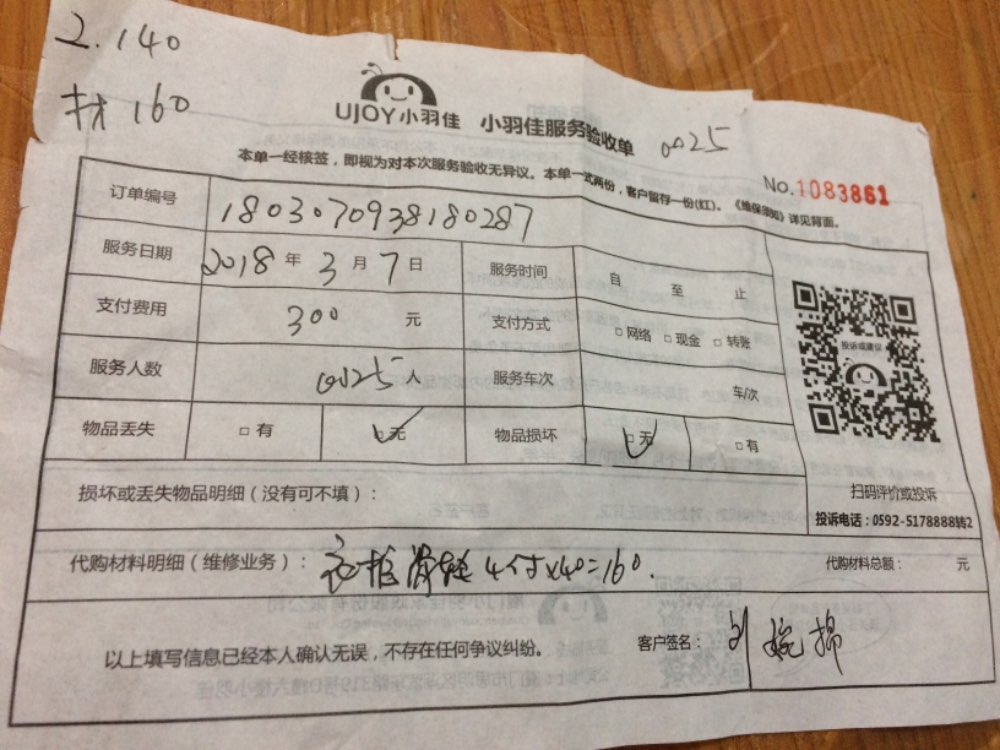 2.140
材160
UJOY小羽佳 小羽佳服务验收单 0025
No.1083861
本单一经核签，即视为对本次服务验收无异议。本单一式两份，客户留存一份(红)。《维保须知》详见背面。
订单编号 1803070938180287
服务日期 2018 年 3 月 7 日 服务时间 自 至 止
支付费用 300 元 支付方式 □网络 □现金 □转账
投诉或建议
服务人数 0025 人 服务车次 车/次
物品丢失 □有 □无 物品损坏 □无 □有
损坏或丢失物品明细（没有可不填）：
扫码评价或投诉
投诉电话：0592-5178888转2
代购材料明细（维修业务）： 衣柜滑轮4付x40=160. 代购材料总额： 元
以上填写信息已经本人确认无误，不存在任何争议纠纷。 客户签名： 刘婉棉